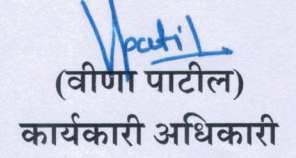 Vpatil
(वीणा पाटील)
कार्यकारी अधिकारी